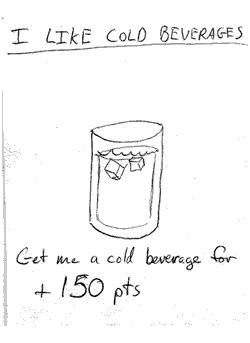 I LIKE COLD BEVERAGES
Get me a cold beverage for
+ 150 pts